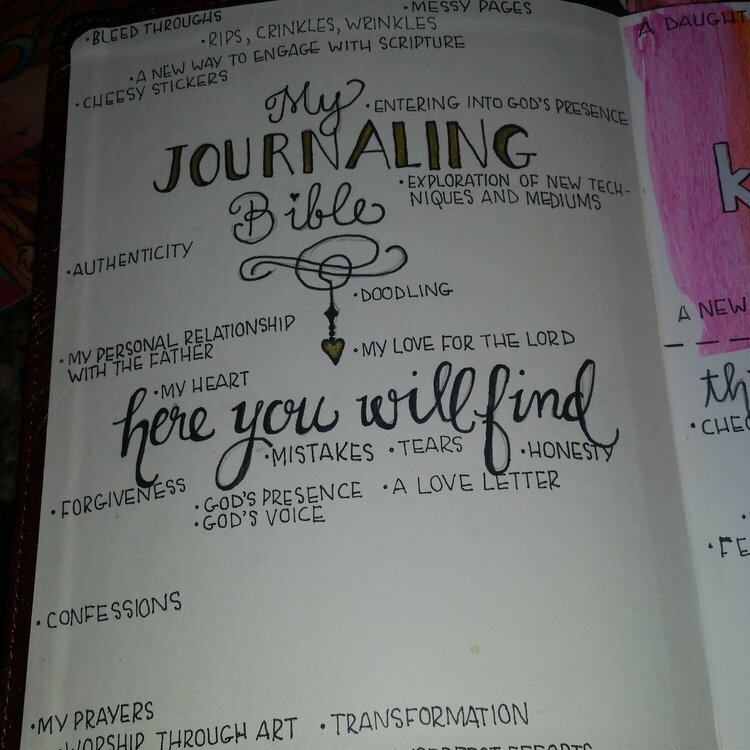 • MESSY PAGES
• BLEED THROUGHS
• RIPS, CRINKLES, WRINKLES
• A NEW WAY TO ENGAGE WITH SCRIPTURE
• CHEESY STICKERS
My
• ENTERING INTO GOD'S PRESENCE
JOURNALING
• EXPLORATION OF NEW TECH-
NIQUES AND MEDIUMS
Bible
• AUTHENTICITY
• DOODLING
• MY PERSONAL RELATIONSHIP
WITH THE FATHER
• MY LOVE FOR THE LORD
• MY HEART
here you will find
• MISTAKES • TEARS • HONESTY
• FORGIVENESS
• GOD'S PRESENCE
• A LOVE LETTER
• GOD'S VOICE
• CONFESSIONS
• MY PRAYERS
• WORSHIP THROUGH ART
• TRANSFORMATION
A
A NEW